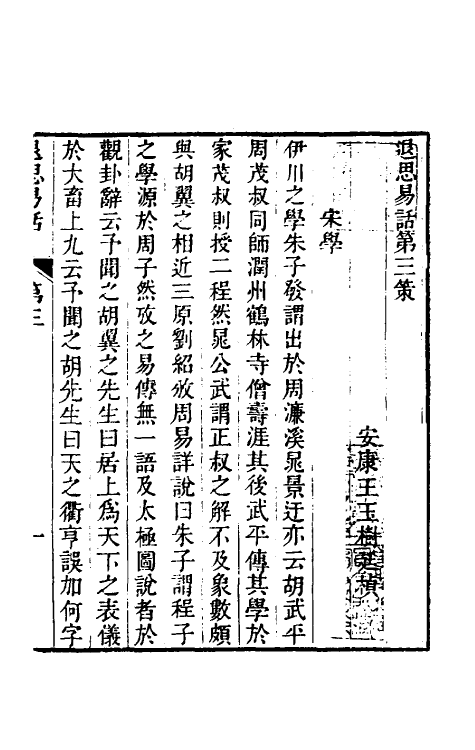 退思易話第三策
安康王玉樹
宋學
伊川之學朱子發謂出於周濂溪晁景迂亦云胡武平
周茂叔同師潤州鶴林寺僧壽涯其後武平傳其學於
家茂叔則授二程然晁公武謂正叔之解不及象數頗
與胡翼之相近三原劉紹攽周易詳說曰朱子謂程子
之學源於周子然攷之易傳無一語及太極圖說者於
觀卦辭云予聞之胡翼之先生曰居上爲天下之表儀
於大畜上九云予聞之胡先生曰天之衢亨誤加何字
退思易話 第三 一